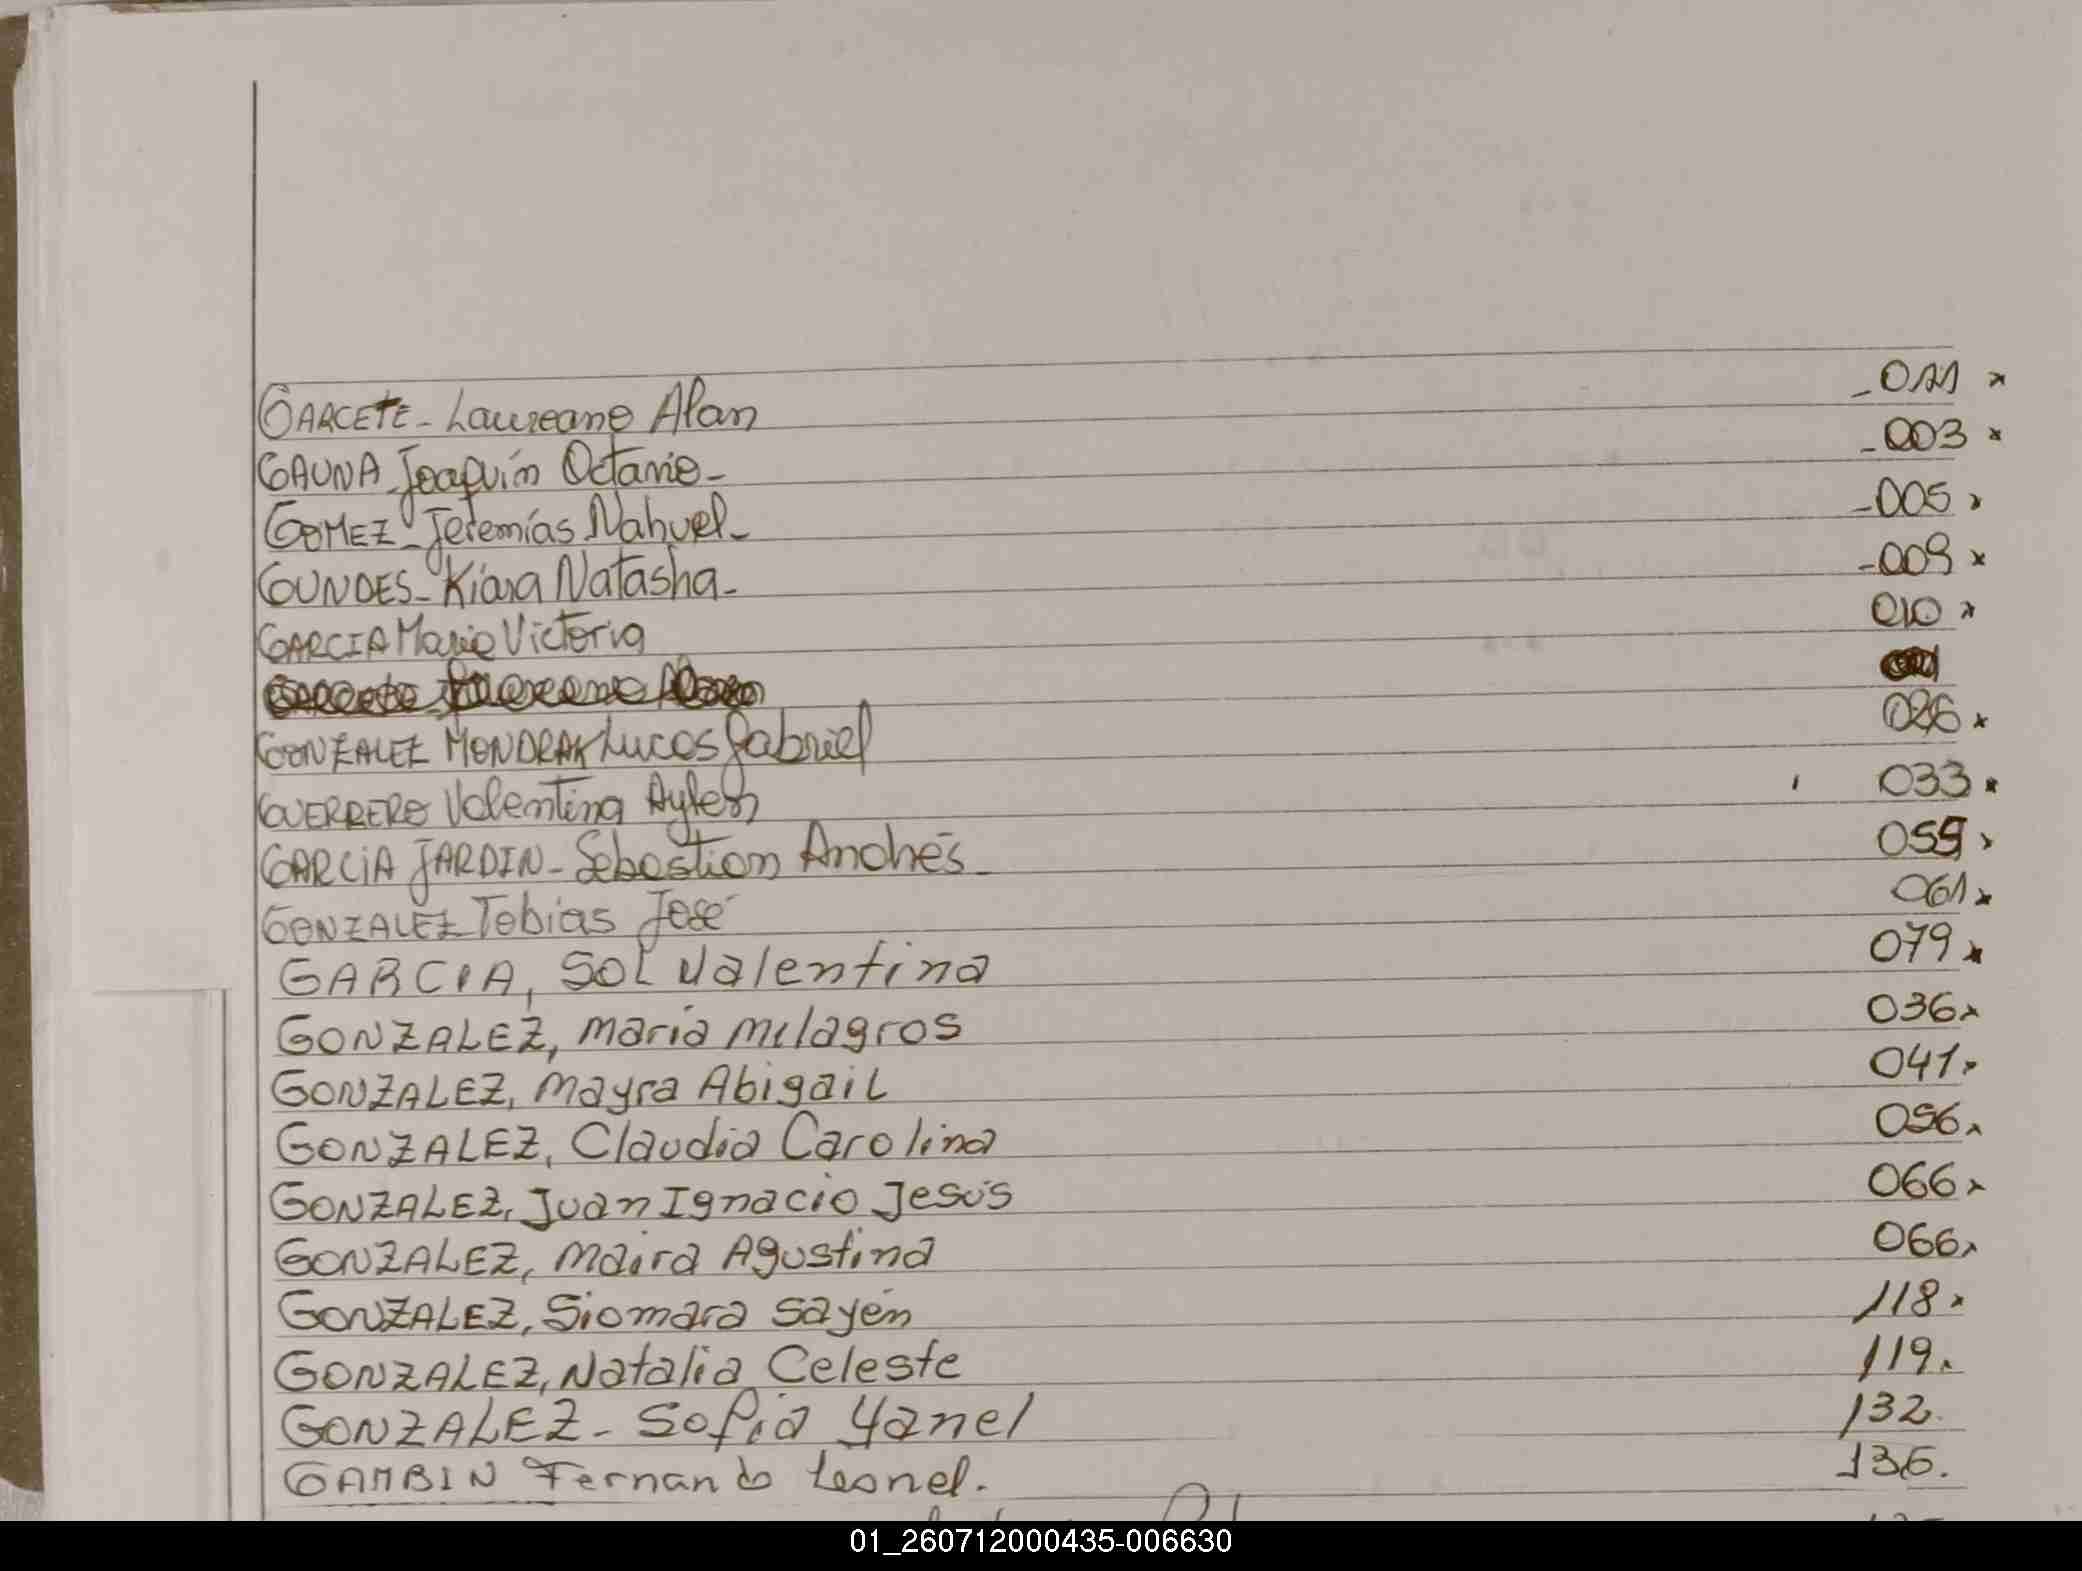 GARCETE - Laureano Alan _ 011 x
GAUNA Joaquín Octavio - _ 003 x
GOMEZ - Jeremías Nahuel - _ 005 x
GUNDES - Kiara Natasha - - 009 x
GARCIA María Victoria 010 x
GONZALEZ MONDRAK Lucas Gabriel 026 x
GUERRERO Valentina Aylen 033 x
GARCÍA JARDIN - Sebastian Andrés - 059 x
GONZALEZ Tobias José 061 x
GARCIA, SOL Valentina 079 x
GONZALEZ, María Milagros 036 x
GONZALEZ, Mayra Abigail 041 x
GONZALEZ, Claudia Carolina 056 x
GONZALEZ, Juan Ignacio Jesús 066 x
GONZALEZ, Maira Agustina 066 x
GONZALEZ, Siomara Sayén 118 x
GONZALEZ, Natalia Celeste 119 x
GONZALEZ - Sofía Yanel 132.
GAMBIN Fernando Leonel. 136.
01_260712000435-006630